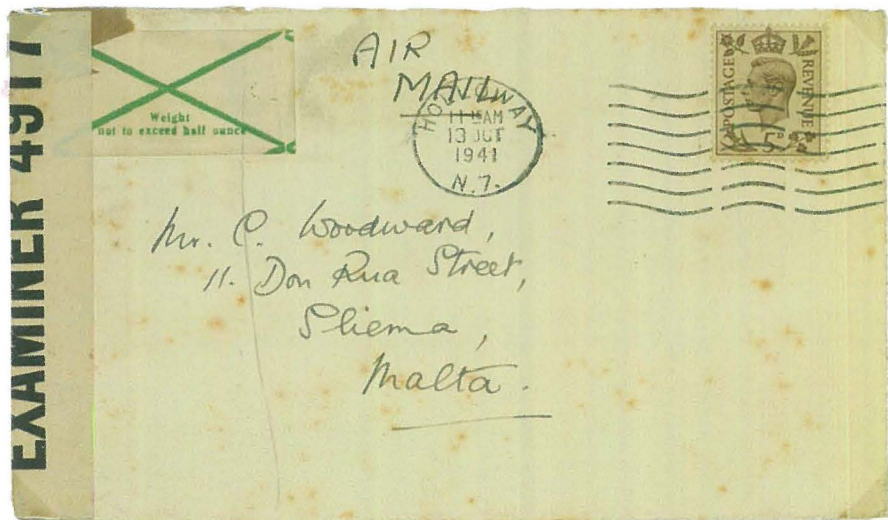 EXAMINER 4917
Weight
not to exceed half ounce
AIR
MAIL
HOLLOWAY
13 OCT
1941
N.7.
POSTAGE
REVENUE
5D
Mr. C. Woodward,
11. Don Rua Street,
Sliema,
Malta.